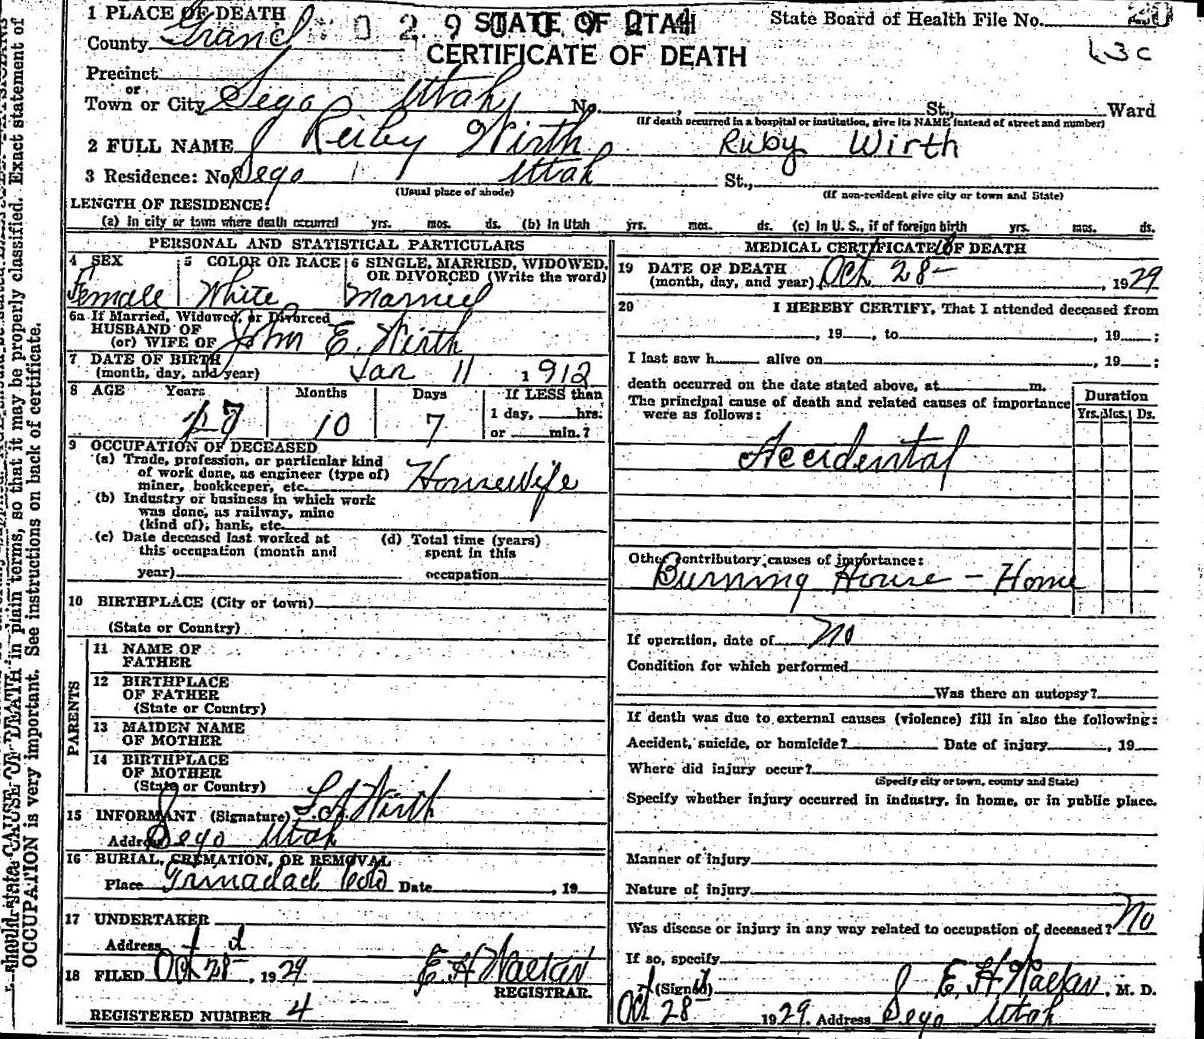 1 PLACE OF DEATH
County Grand
STATE OF UTAH
CERTIFICATE OF DEATH
State Board of Health File No. 20
Precinct
or
Town or City Sego Utah No. , St., Ward
(If death occurred in a hospital or institution, give its NAME instead of street and number)
2 FULL NAME Ruby Wirth Ruby Wirth
3 Residence: No. Sego Utah St.,
(Usual place of abode) (If non-resident give city or town and State)
LENGTH OF RESIDENCE:
(a) In city or town where death occurred yrs. mos. ds. (b) In Utah yrs. mos. ds. (c) In U. S., if of foreign birth yrs. mos. ds.
PERSONAL AND STATISTICAL PARTICULARS
4 SEX Female
5 COLOR OR RACE White
6 SINGLE, MARRIED, WIDOWED, OR DIVORCED (Write the word) Married
6a If Married, Widowed, or Divorced
HUSBAND OF
(or) WIFE OF John E. Wirth
7 DATE OF BIRTH
(month, day, and year) Jan 11 1912
8 AGE Years 17 Months 10 Days 7
If LESS than
1 day, hrs.
or min.?
9 OCCUPATION OF DECEASED
(a) Trade, profession, or particular kind
of work done, as engineer (type of)
miner, bookkeeper, etc. Housewife
(b) Industry or business in which work
was done, as railway, mine
(kind of), bank, etc.
(c) Date deceased last worked at
this occupation (month and
year)
(d) Total time (years)
spent in this
occupation
10 BIRTHPLACE (City or town)
(State or Country)
PARENTS
11 NAME OF
FATHER
12 BIRTHPLACE
OF FATHER
(State or Country)
13 MAIDEN NAME
OF MOTHER
14 BIRTHPLACE
OF MOTHER
(State or Country)
15 INFORMANT (Signature) Wirth
Address Sego Utah
16 BURIAL, CREMATION, OR REMOVAL
Place Trinadad Colo Date , 19
17 UNDERTAKER
Address
18 FILED Oct 28 , 1929 E. H.
REGISTRAR.
REGISTERED NUMBER 4
MEDICAL CERTIFICATE OF DEATH
19 DATE OF DEATH
(month, day, and year) Oct 28- , 1929
20 I HEREBY CERTIFY, That I attended deceased from
, 19 , to , 19 ;
I last saw h alive on , 19 ;
death occurred on the date stated above, at m.
The principal cause of death and related causes of importance
were as follows:
Duration
Yrs. Mos. Ds.
Accidental
Other contributory causes of importance:
Burning House - Home
If operation, date of no
Condition for which performed
Was there an autopsy?
If death was due to external causes (violence) fill in also the following:
Accident, suicide, or homicide? Date of injury , 19
Where did injury occur?
(Specify city or town, county and State)
Specify whether injury occurred in industry, in home, or in public place.
Manner of injury
Nature of injury
Was disease or injury in any way related to occupation of deceased? No
If so, specify
(Signed) E. H. , M. D.
Oct 28 1929. Address Sego Utah
should state CAUSE OF DEATH in plain terms, so that it may be properly classified. Exact statement of
OCCUPATION is very important. See instructions on back of certificate.